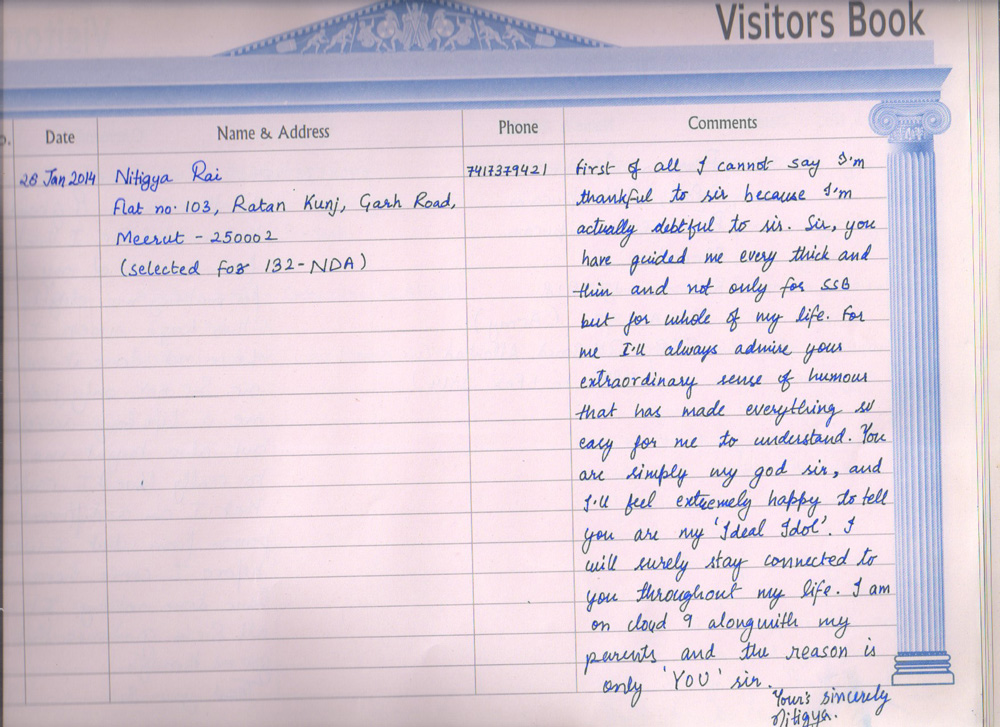 Visitors Book
Date Name & Address Phone Comments
28 Jan 2014 Nitigya Rai 7417379421 first of all I cannot say I'm
Flat no. 103, Ratan Kunj, Garh Road, thankful to sir because I'm
Meerut - 250002 actually debtful to sir. Sir, you
(selected for 132-NDA) have guided me every thick and
thin and not only for SSB
but for whole of my life. For
me I'll always admire your
extraordinary sense of humour
that has made everything so
easy for me to understand. You
are simply my god sir, and
I'll feel extremely happy to tell
you are my 'Ideal Idol'. I
will surely stay connected to
you throughout my life. I am
on cloud 9 alongwith my
parents and the reason is
only 'YOU' sir.
Your's sincerely
Nitigya.